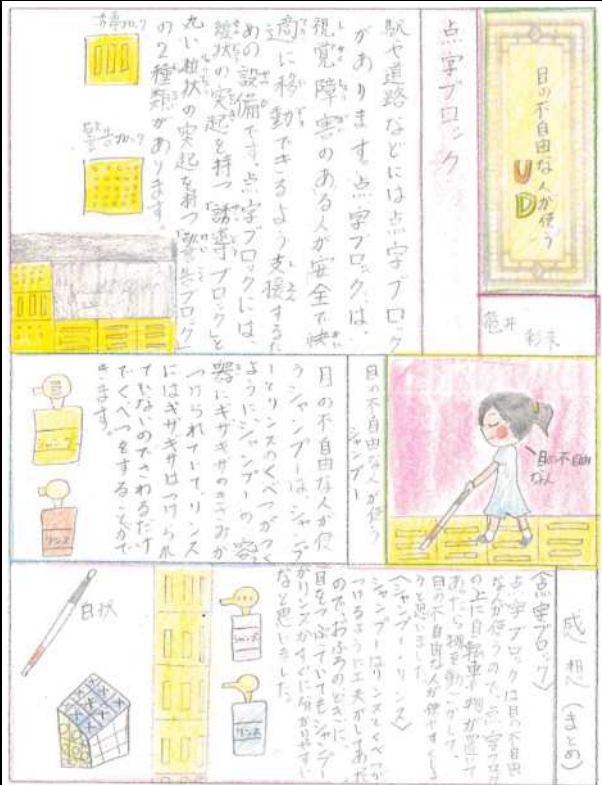 目の不自由な人が使う
UD
亀井
点字ブロック
駅や道路などには点字ブロック
があります。点字ブロックは、
視覚障害のある人が安全で快
適に移動できるよう支援するた
めの設備です。点字ブロックには、
線状の突起を持つ「誘導ブロック」と
丸い粒状の突起を持つ「警告ブロック」
の2種類があります。
誘導ブロック
警告ブロック
目の不自由な人
目の不自由な人が使う
シャンプー
目の不自由な人が使
うシャンプーは、シャンプ
ーとリンスのくべつがつく
ように、シャンプーの容
器にギザギザのきざみが
つけられていて、リンス
にはギザギザはつけられ
ていないのでさわるだけ
でくべつをすることがで
きます。
シャンプー
リンス
感想(まとめ)
〈点字ブロック〉
点字ブロックは目の不自由
な人が使うので、点字ブロック
の上に自転車や物が置いて
あったら物を動かして、
目の不自由な人が使やすくしよ
うと思いました。
〈シャンプー・リンス〉
シャンプーはリンスとくべつが
つけるように工夫がしてあった
ので、おふろのときに、
目をつぶっていてもシャンプー
がリンスかすぐに分かりやすい
なと思いました。
シャンプー
リンス
白状